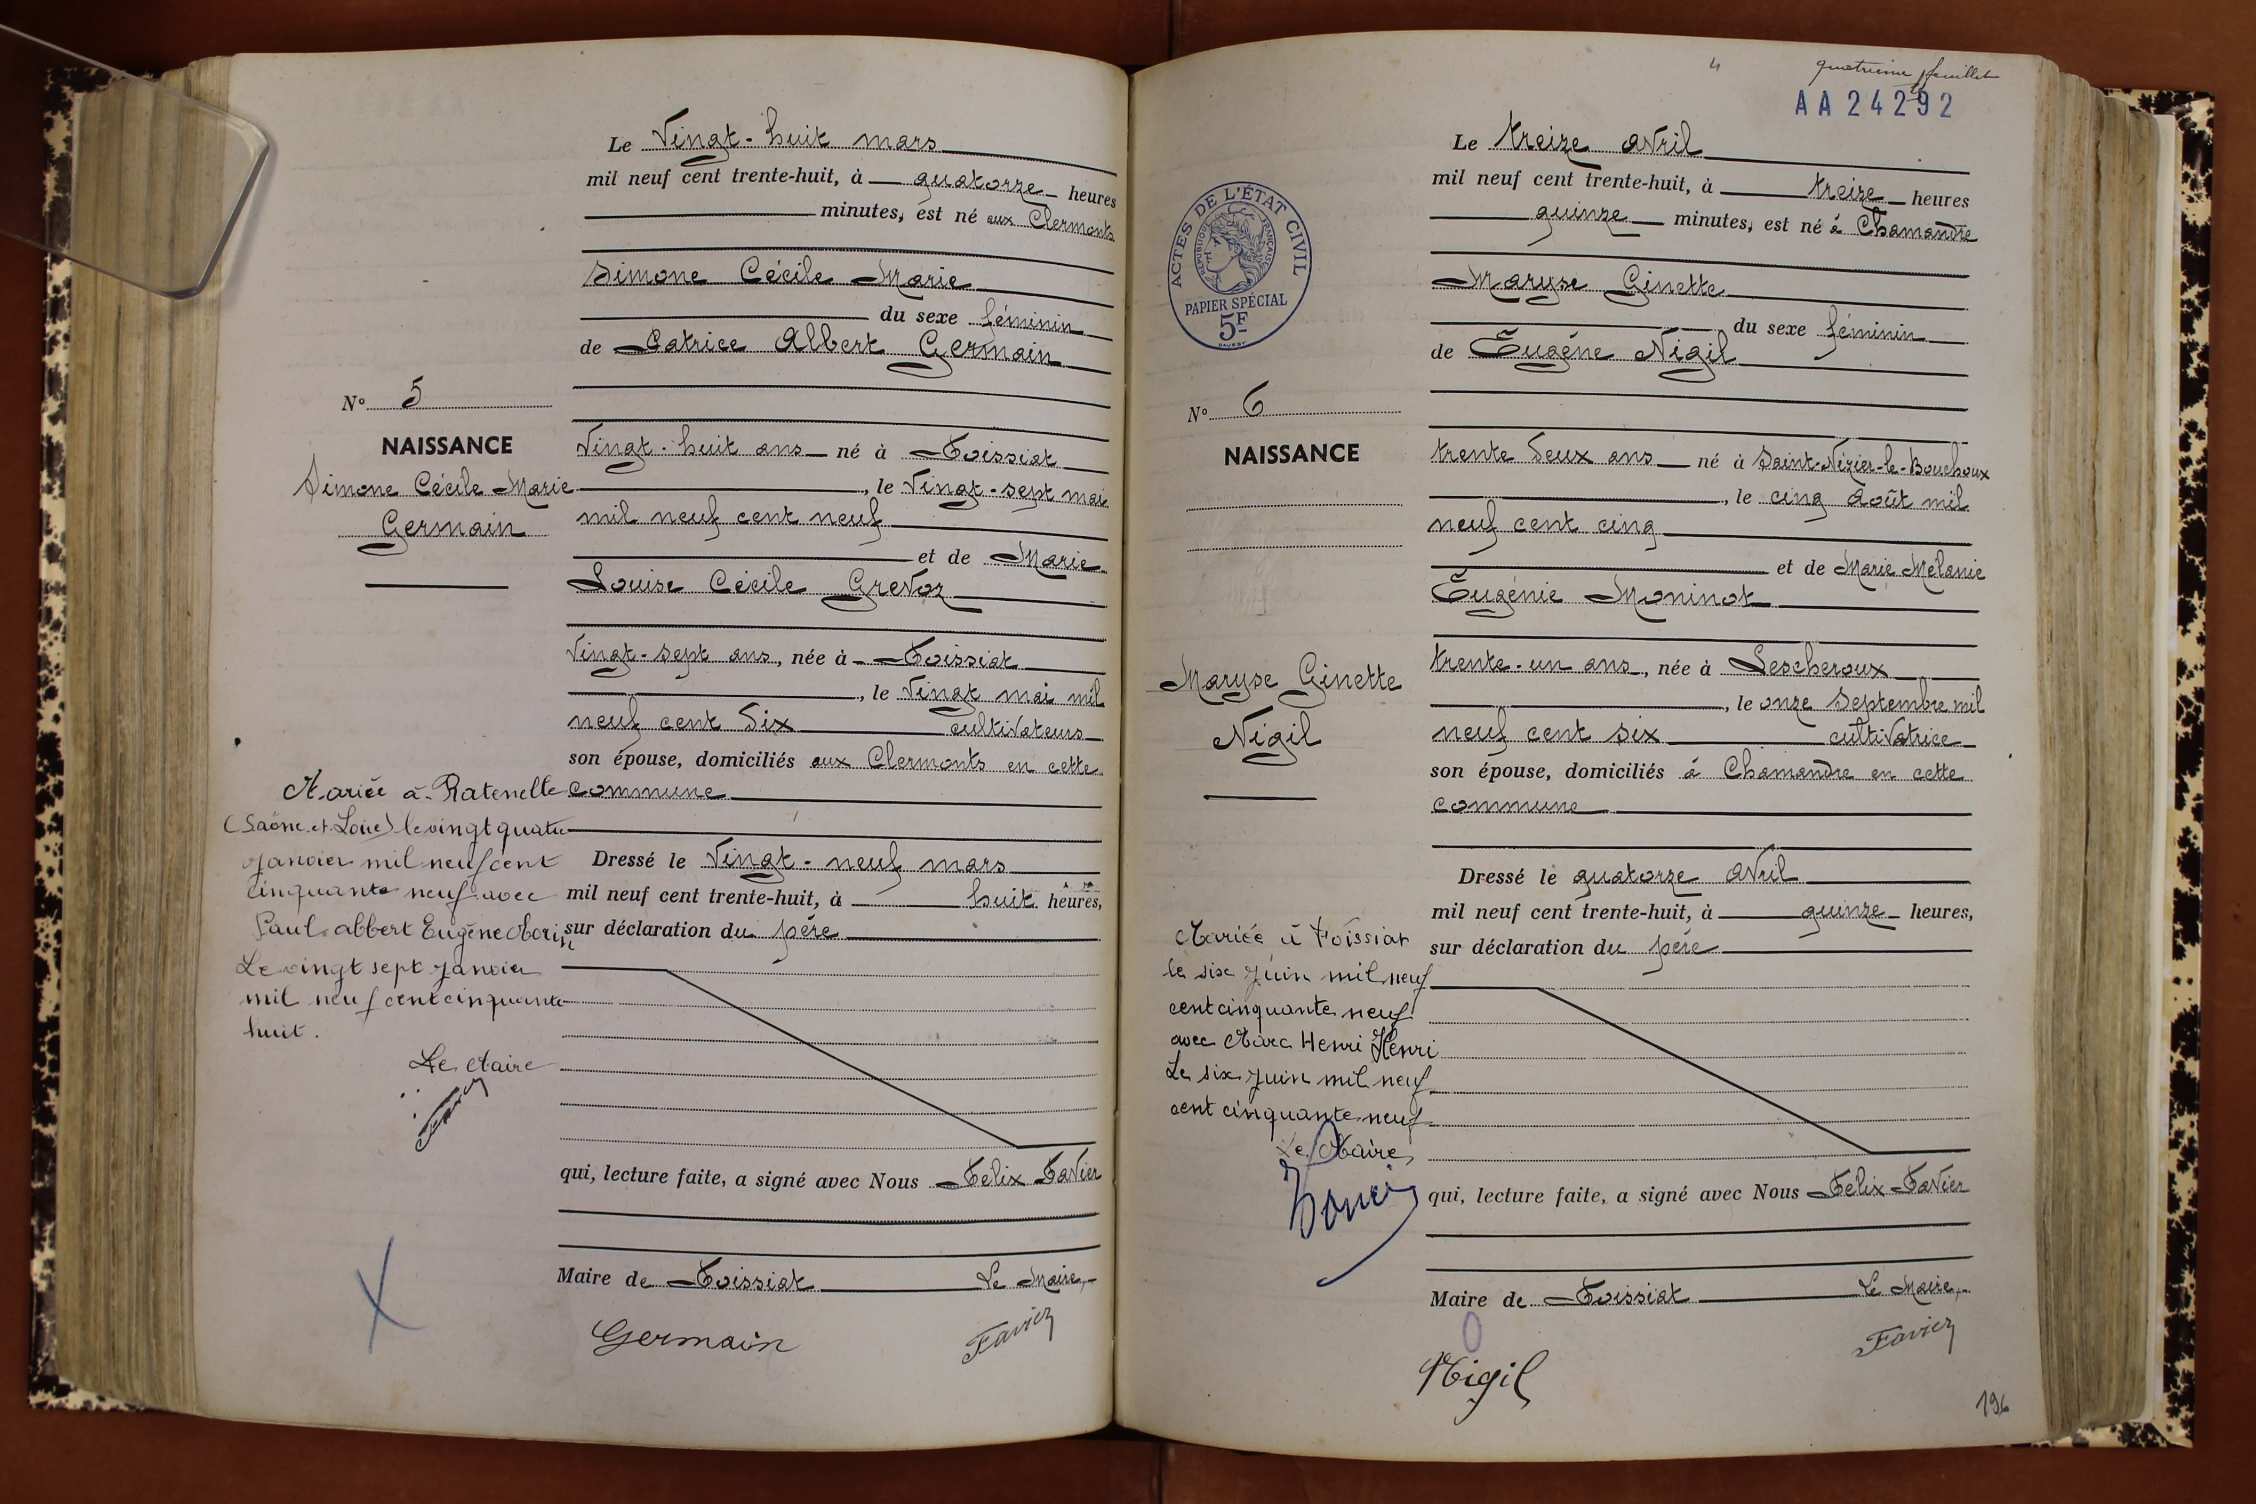 Le Vingt-huit mars
mil neuf cent trente-huit, à quatorze heures
minutes, est né aux Clermonts
Simone Cécile Marie
du sexe féminin
de Patrice Albert Germain
N° 5
NAISSANCE
Simone Cécile Marie
Germain
Vingt-huit ans né à Foissiat
, le Vingt-sept mai
mil neuf cent neuf
et de Marie
Louise Cécile Grevoz
Vingt-sept ans, née à Foissiat
, le Vingt mai mil
neuf cent dix cultivateurs
son épouse, domiciliés aux Clermonts en cette
commune
Dressé le Vingt-neuf mars
mil neuf cent trente-huit, à huit heures,
sur déclaration du père
Mariée à Ratenelle
(Saône et Loire) le vingt quatre
janvier mil neuf cent
cinquante neuf avec
Paul albert Eugène Morin
Le vingt sept janvier
mil neuf cent cinquante
huit.
Le Maire
Favier
qui, lecture faite, a signé avec Nous Félix Favier
Maire de Foissiat Le Maire,
Germain Favier
4 quatrième feuillet
AA24292
ACTES DE L'ÉTAT CIVIL
RÉPUBLIQUE FRANÇAISE
PAPIER SPÉCIAL
5F
Le treize avril
mil neuf cent trente-huit, à treize heures
quinze minutes, est né à Chamandre
Maryse Ginette
du sexe féminin
de Eugène Nigil
N° 6
NAISSANCE
Maryse Ginette
Nigil
trente deux ans né à Saint-Nizier-le-Bouchoux
, le cinq août mil
neuf cent cinq
et de Marie Mélanie
Eugénie Moninot
trente-un ans, née à Lescheroux
, le onze septembre mil
neuf cent six cultivatrice
son épouse, domiciliés à Chamandre en cette
commune
Dressé le quatorze avril
mil neuf cent trente-huit, à quinze heures,
sur déclaration du père
Mariée à Foissiat
le six juin mil neuf
cent cinquante neuf
avec Marc Henri Henri
Le six juin mil neuf
cent cinquante neuf
Le Maire,
qui, lecture faite, a signé avec Nous Félix Favier
Maire de Foissiat Le Maire,
Nigil Favier